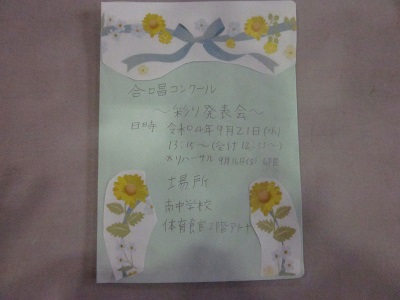 合唱コンクール
～彩り発表会～
日時 令和4年9月21日(水)
13:15～(受付12:
※リハーサル 9月16日(金)
場所
南中学校
体育館2階アリーナ